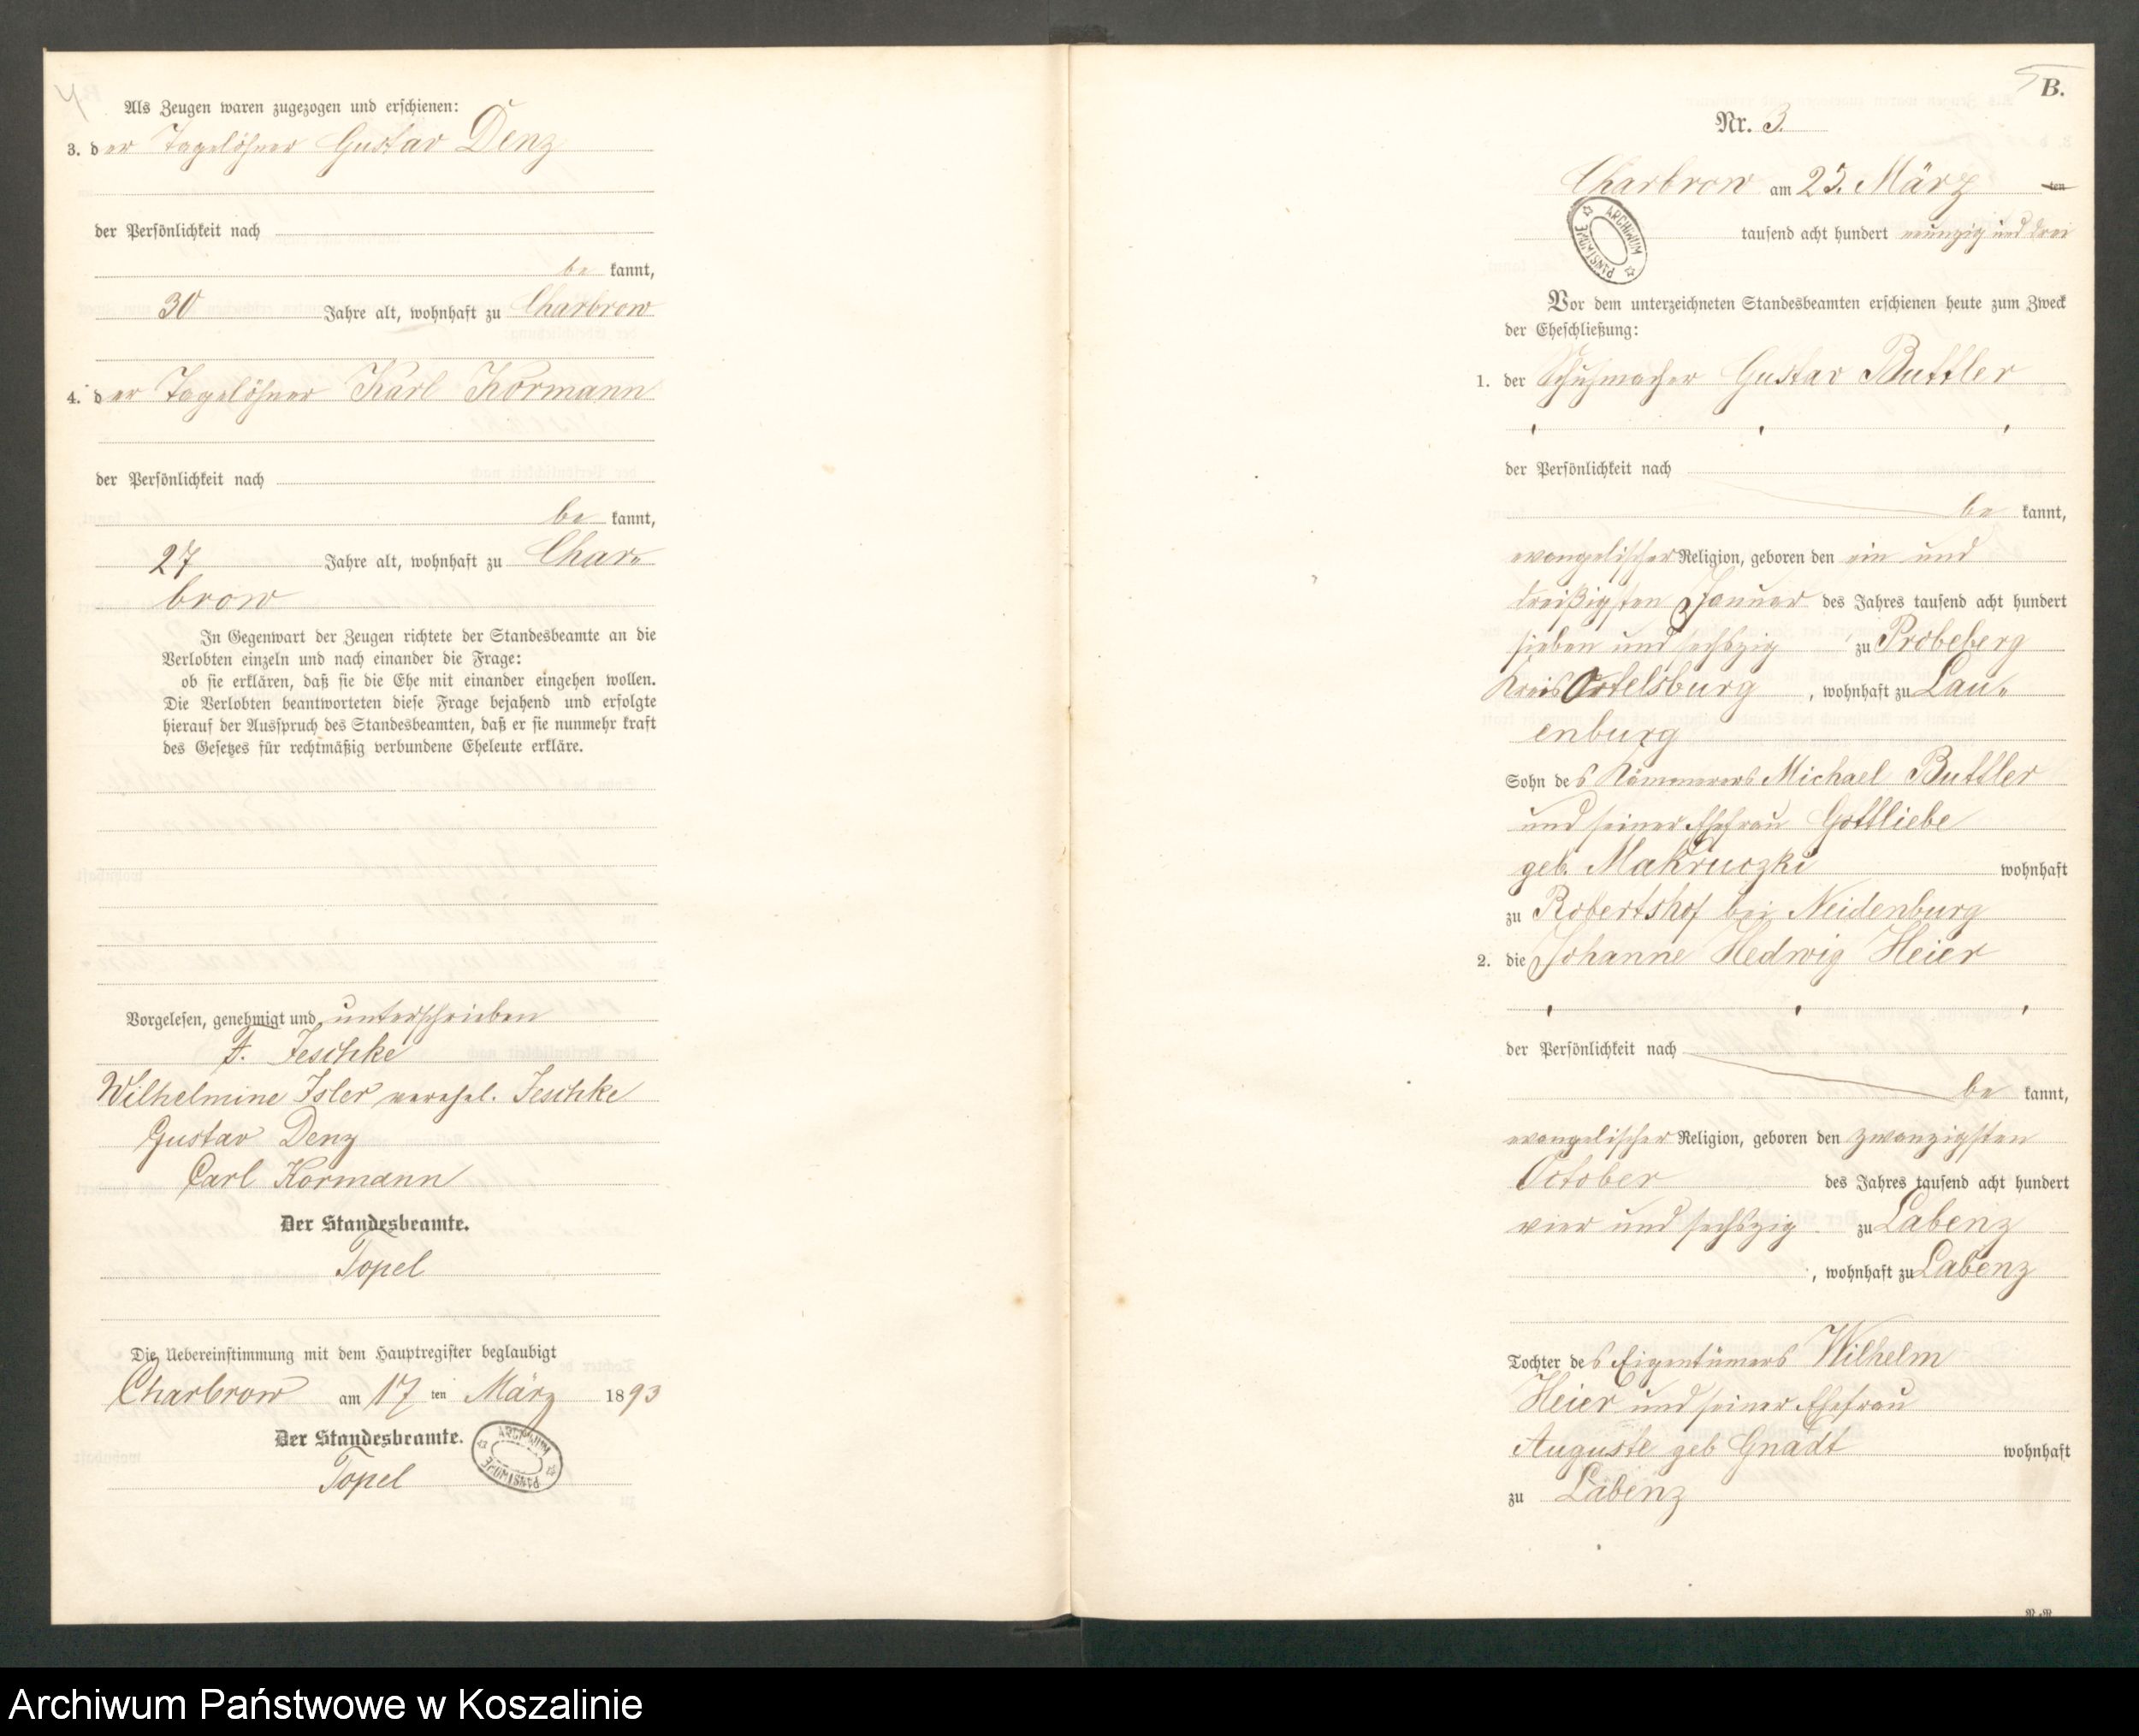 4
Als Zeugen waren zugezogen und erschienen:
3. der Tagelöhner Gustav Denz
der Persönlichkeit nach
be kannt,
30 Jahre alt, wohnhaft zu Charbrow
4. der Tagelöhner Karl Kormann
der Persönlichkeit nach
be kannt,
27 Jahre alt, wohnhaft zu Char-
brow
In Gegenwart der Zeugen richtete der Standesbeamte an die
Verlobten einzeln und nach einander die Frage:
ob sie erklären, daß sie die Ehe mit einander eingehen wollen.
Die Verlobten beantworteten diese Frage bejahend und erfolgte
hierauf der Ausspruch des Standesbeamten, daß er sie nunmehr kraft
des Gesetzes für rechtmäßig verbundene Eheleute erkläre.
Vorgelesen, genehmigt und unterschrieben
F. Jeschke
Wilhelmine Isler verehel. Jeschke
Gustav Denz
Carl Kormann
Der Standesbeamte.
Topel
Die Uebereinstimmung mit dem Hauptregister beglaubigt
Charbrow am 17 ten März 1893
Der Standesbeamte.
Topel
ARCHIWUM PAŃSTWOWE
5
B.
Nr. 3.
Charbrow am 23. März ten
tausend acht hundert neunzig und drei
ARCHIWUM PAŃSTWOWE
Vor dem unterzeichneten Standesbeamten erschienen heute zum Zweck
der Eheschließung:
1. der Schuhmacher Gustav Buttler
der Persönlichkeit nach
be kannt,
evangelischer Religion, geboren den ein und
dreißigsten Januar des Jahres tausend acht hundert
sieben und sechszig zu Probeberg
Kreis Ortelsburg, wohnhaft zu Lau-
enburg
Sohn des Kämmerers Michael Buttler
und seiner Ehefrau Gottliebe
geb. Makruczki wohnhaft
zu Robertshof bei Neidenburg
2. die Johanne Hedwig Heier
der Persönlichkeit nach
be kannt,
evangelischer Religion, geboren den zwanzigsten
October des Jahres tausend acht hundert
vier und sechszig zu Labenz
, wohnhaft zu Labenz
Tochter des Eigentümers Wilhelm
Heier und seiner Ehefrau
Auguste geb Gnadt wohnhaft
zu Labenz
Archiwum Państwowe w Koszalinie